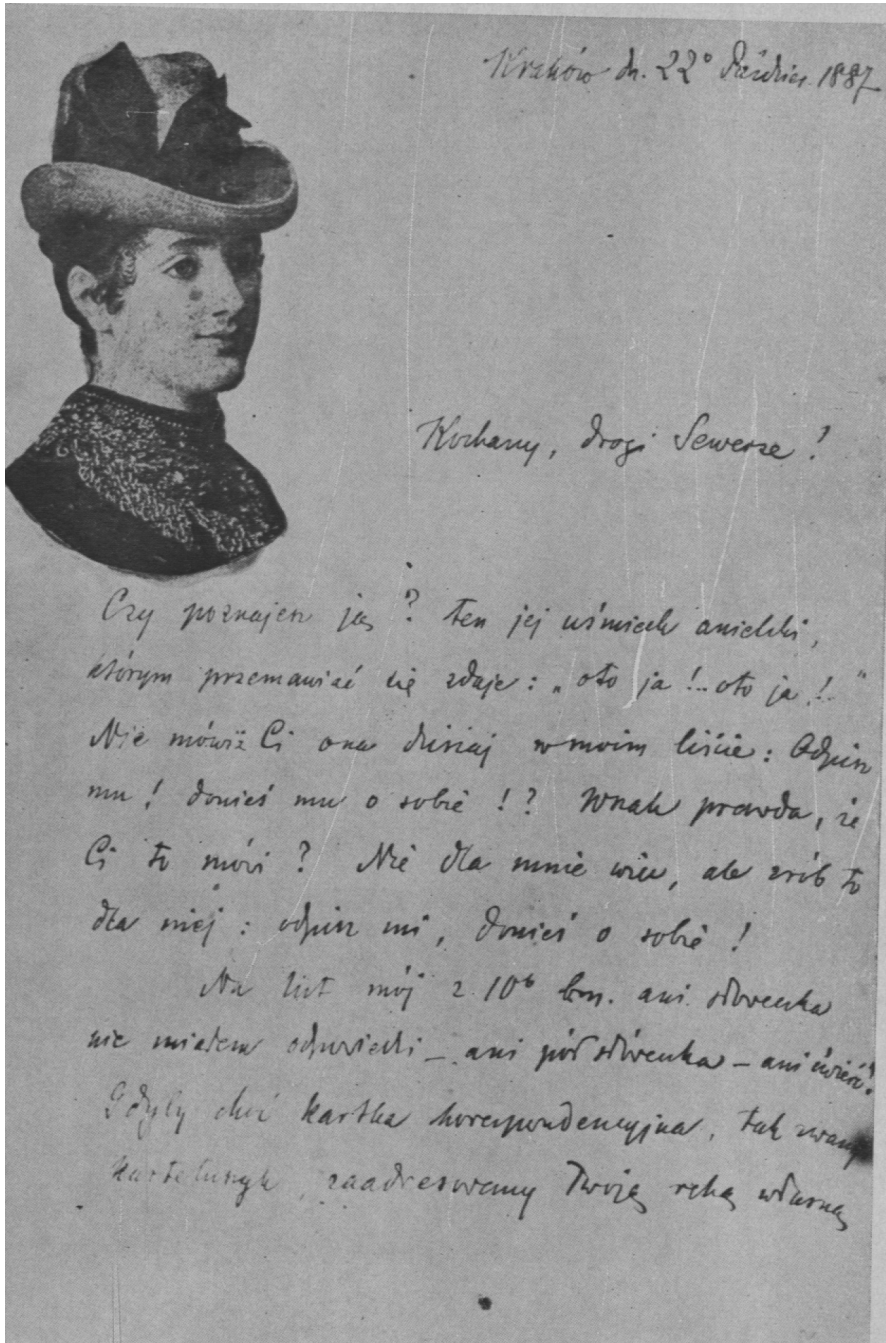 Kraków dn. 22° Paździer. 1887
Kochany, drogi Sewerze!
Czy poznajesz ją? ten jej uśmiech anielski,
którym przemawiać się zdaje: „oto ja!.. oto ja!.."
Nie mówiż Ci ona dzisiaj w moim liście: Odpisz
mu! donieś mu o sobie!? Wszak prawda, że
Ci to mówi? Nie dla mnie więc, ale zrób to
dla niej: odpisz mi, donieś o sobie!
Na list mój z 10° bm. ani słóweńka
nie miałem odpowiedzi – ani pół słóweńka – ani ćwierć!
Gdyby choć kartka korespondencyjna, tak zwany
zaadresowany Twoją ręką własną